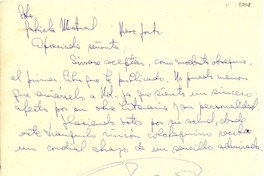 Gabriela Mistral New York
Apreciada señorita:
Sírvase aceptar, con modesto obsequio,
el primer libro que he publicado. No puedo menos
que enviárselo a Ud. ya que siento un sincero
afecto por su obra literaria y su personalidad
por su salud, desde
este tranquilo rincón
un cordial abrazo de un sencillo admirador.